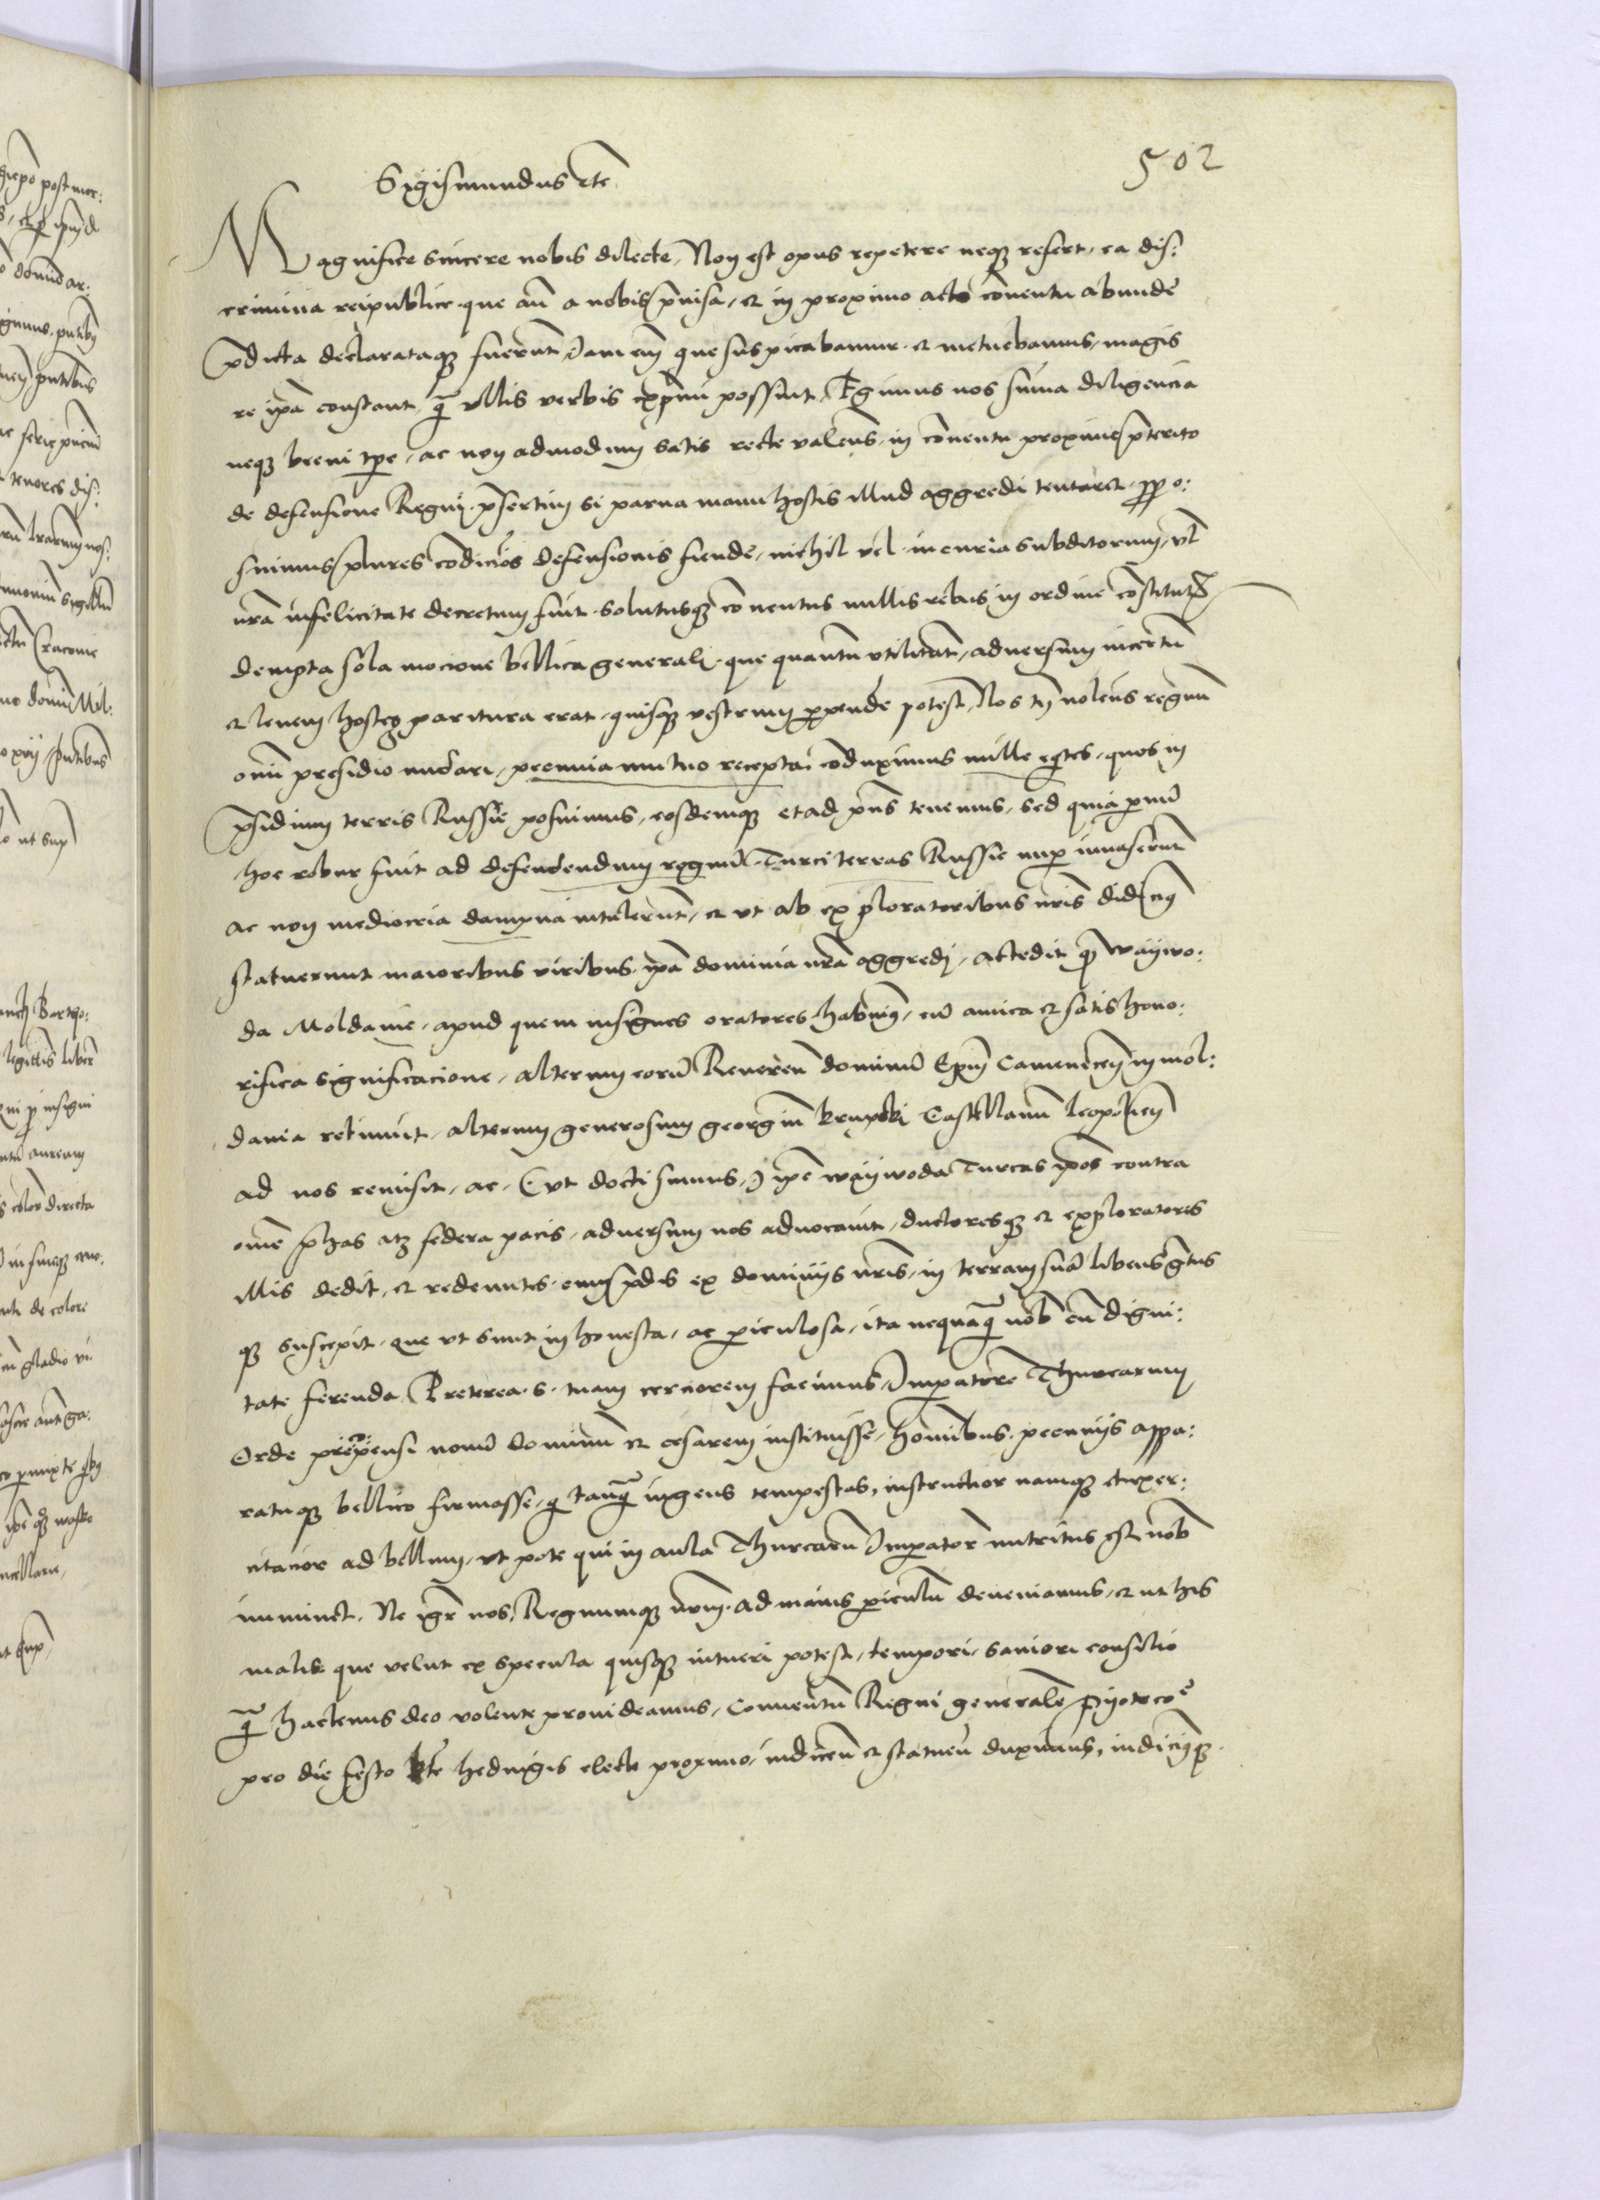 502
Sigismundus etc
Magnifice sincere nobis dilecte, Non est opus repetere neqz refert, ea dis:
crimina reipublice que añ a nobis p̃uisa, et in proximo acto cõuentu abunde
p̃dicta declarataqz fuerunt, Iam eñ que suspicabamur et metuebamus, magis
re ip̃a constant, q̃ ullis verbis exp̃mi possint, Egimus nos su̅ma diligencia
neqz breui tp̃e, ac non admodum satis recte valens, in cõuentu proxime p̃terito
de defensione Regni, p̃sertim si parua manu hostis illud aggredi tentaret, p̱po:
suimus plures cõdiciões defensionis fiende, nichil vel incuria subditorum, vl̃
nr̃a infelicitate decretum fuit, solutusqz conuentus nullis rebus in ordine cõstitutis
dempta sola mocione bellica generali, que quantũ utilitatis, aduersum incertũ
et leuem hostem paritura erat, quisqz vestrum perpendẽ potest, Nos tñ nolens regnũ
omi presidio nudari, pecunia mutuo recepta cõduximus mille eq̃tes, quos in
p̃sidium terris Russie posuimus, eosdemqz et ad p̃ns tenemus, sed quia paruũ
hoc robur fuit ad defendendum regnũ, Turci terras Russie nup̱ inuaserunt
ac non mediocria dampna intulerunt, et ut ab exploratoribus nr̃is didicimus
statuerunt maioribus viribus ip̃a dominia nr̃a aggredi, accedit q̱ waywo:
da Moldauie, apud quem insignes oratores habuimus, cũ amica et satis hono:
rifica significacione, alterum eorũ Reuerendũ dominũ Ep̃m Camenecen̄ in mol:
dauia retinuit, alterum generosum georgiũ krupski Castellanũ leopolien̄
ad nos remisit, ac (ut docti sumus,) ip̃e waywoda Turcas ip̃os contra
om̃e p̱ has atqz federa pacis, aduersum nos aduocauit, ductoresqz et exploratores
illis dedit, et redeuntes cum p̃dis ex dominijs nr̃is, in terram suã libens gr̃tus
qz suscepit, que ut sunt inhonesta, ac p̱iculosa, ita nequaq̃ nob̃ cũ digni:
tate ferenda. Preterea s. tuam cerciorem facimus, Imperatorẽ Thurcarum
Orde p̃copiensi nouũ dominũ et cesarem instituisse, hominibus pecunijs appa:
ratuqz bellico firmasse, q tanq̃ ingens tempestas, instructior namqz et exer:
citacior ad bellum, ut pote qui in aula Thurcarũ Imperatoris nutritus est, nob̃
imminet. Ne igr̃ nos, Regnumqz nr̃m ad maius p̱iculũ deueniamus, et ut his
malis que velut ex specula quisqz intueri potest, tempori saniori consilio
q̃ hactenus deo volente prouideamus, Conuentũ Regni generalẽ piotrcouie
pro die festo scte hedwigis electe proximo, indicendũ et statuendũ duximus, indicimusqz